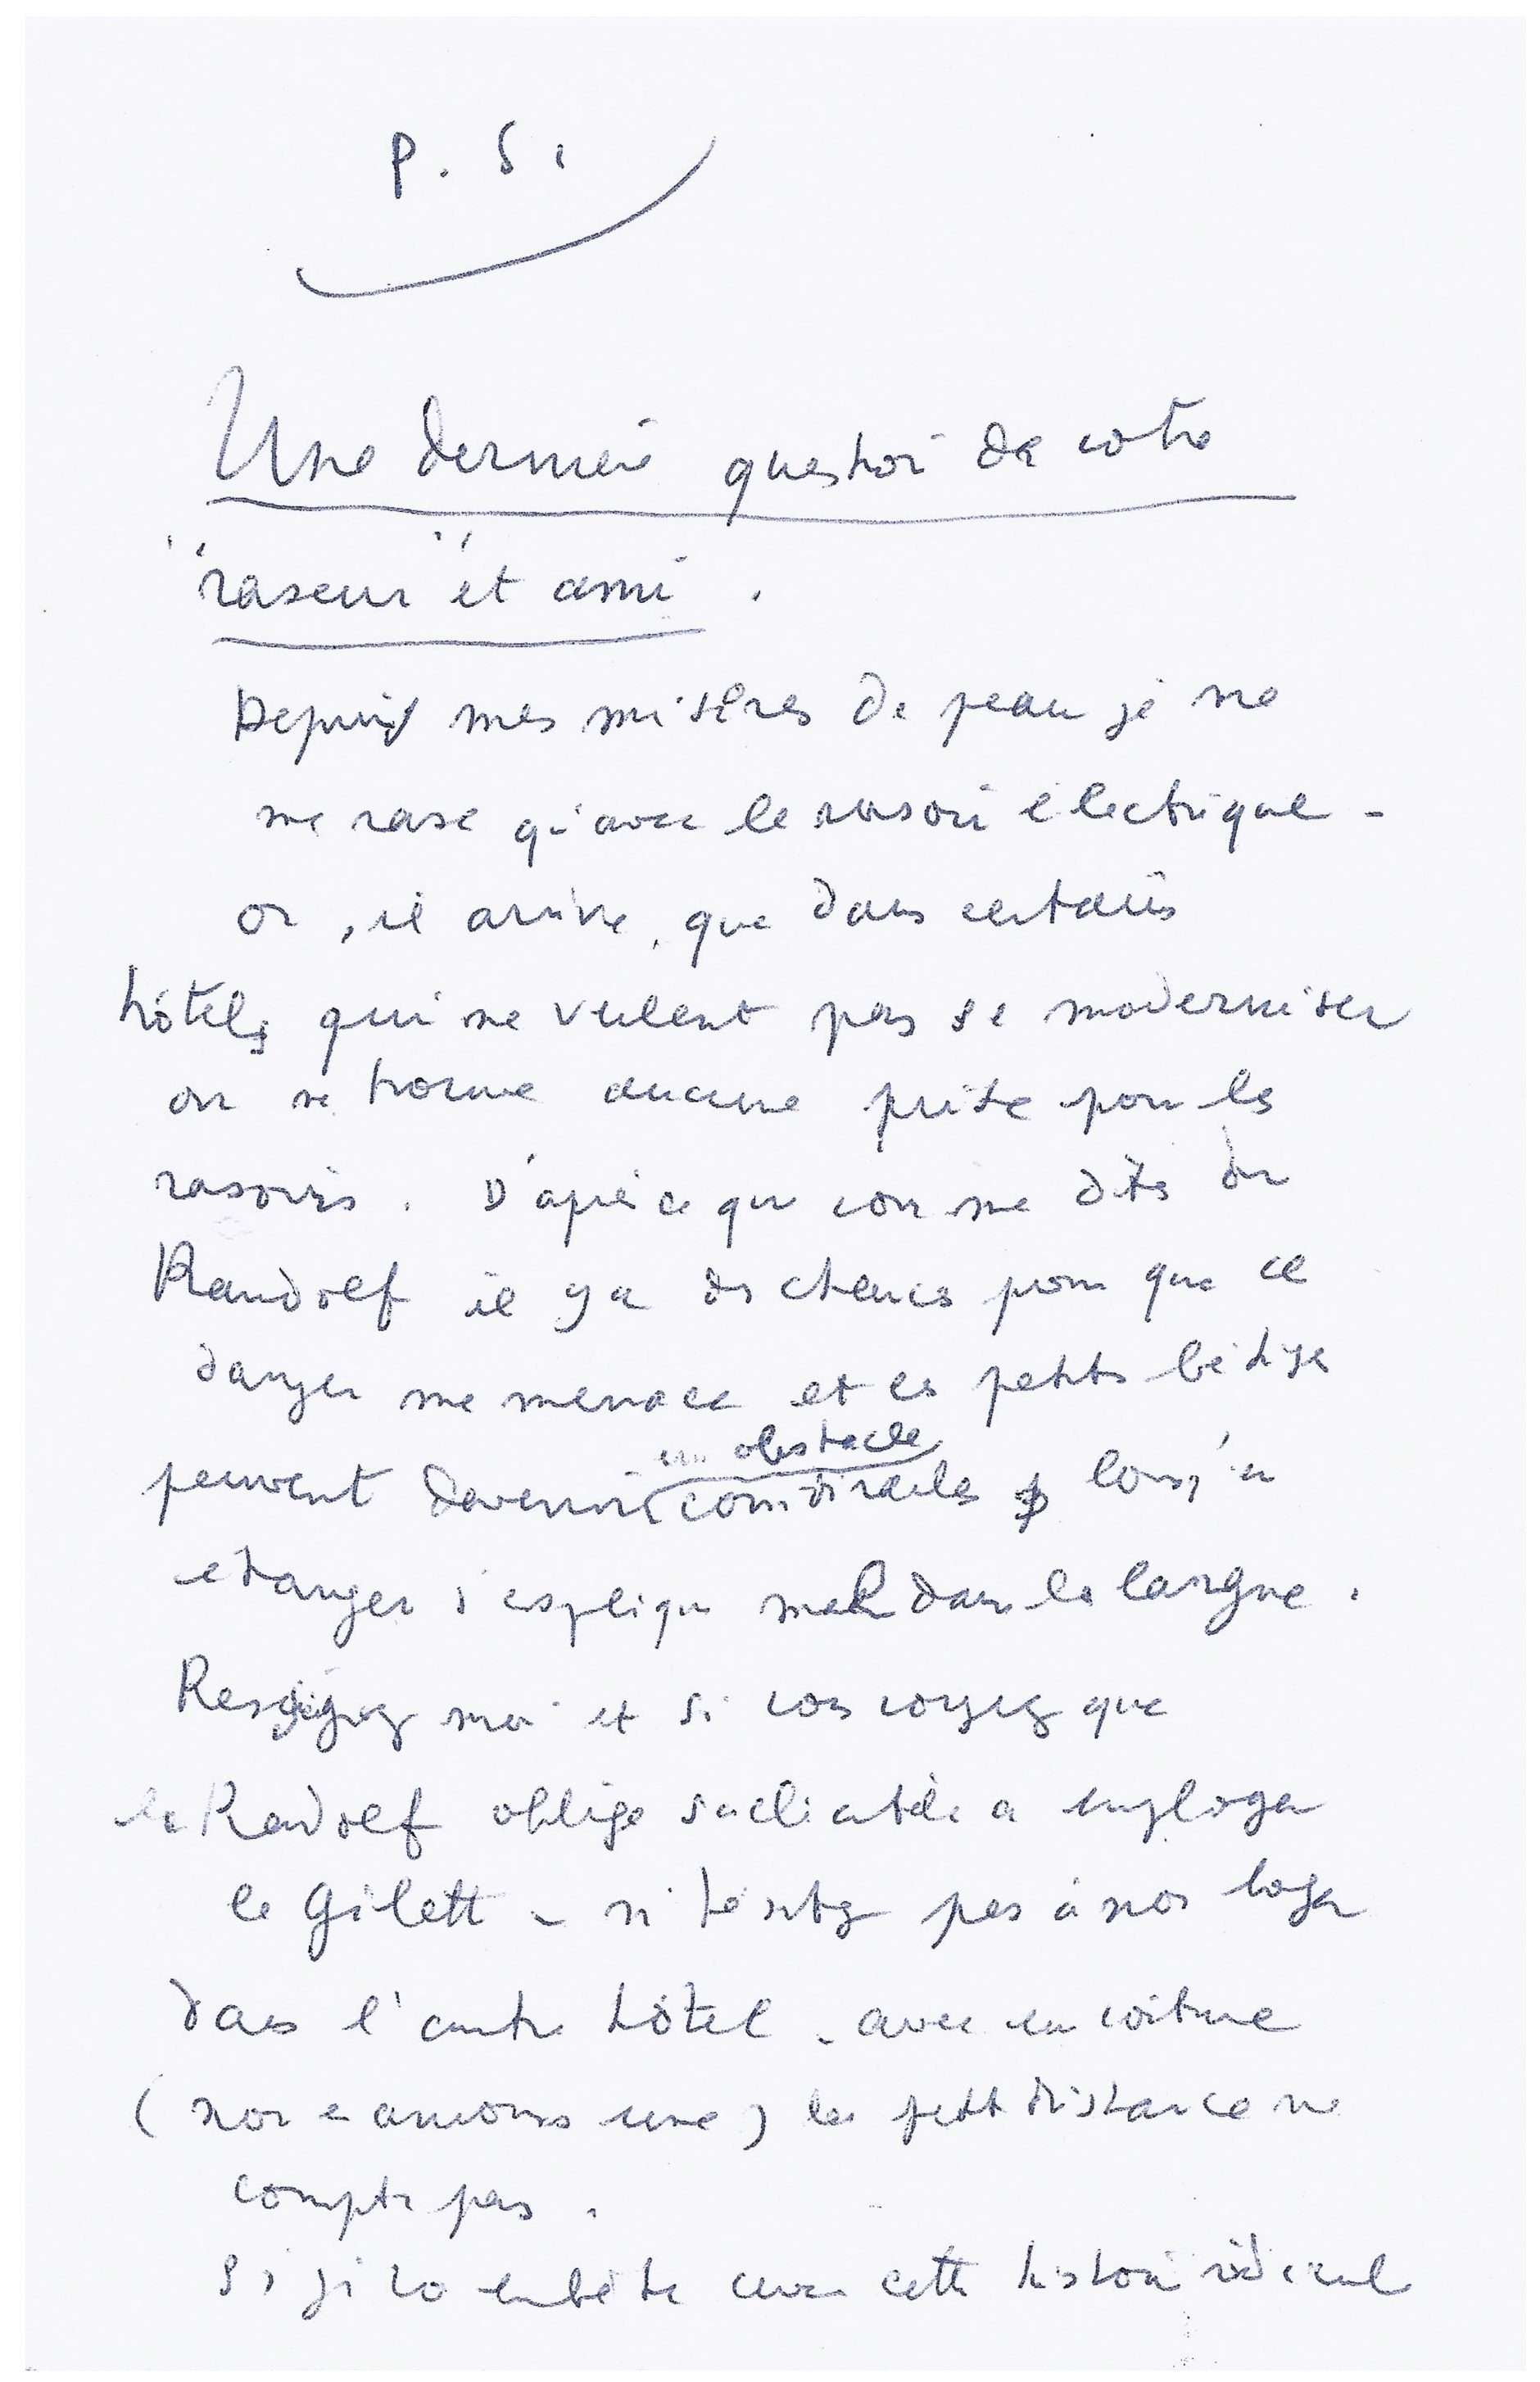 P.S.
Une dernière question de votre
"raseur" et ami.
Depuis mes misères de peau je ne
me rase qu'avec le rasoir électrique -
or, il arrive, que dans certains
hôtels qui ne veulent pas se moderniser
on ne trouve aucune prise pour les
rasoirs. D'après ce que vous me dites du
Randolf il y a des chances pour que ce
danger me menace et ces petits bêtises
peuvent devenir un obstacle considérables lorsq'un
etranger s'esplique mal dans la langue.
Resgignez moi et si vous voyez que
le Radolf oblige sa clientèle a employer
le Gilett - n'hésitez pas à nos loger
dans l'autre hôtel - avec la voiture
(nos en aurons une) la petit distance ne
compte pas.
Si je vo embête avec cette histoire ridicul